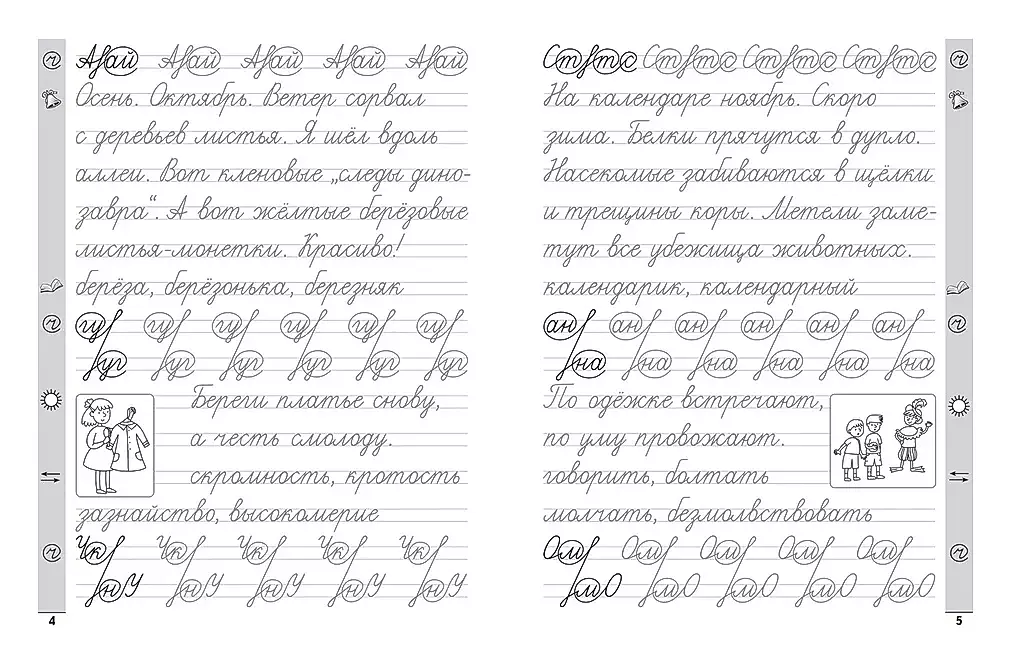 Айай Айай Айай Айай Айай
Осень. Октябрь. Ветер сорвал
с деревьев листья. Я шёл вдоль
аллеи. Вот кленовые „следы дино-
завра“. А вот жёлтые берёзовые
листья-монетки. Красиво!
берёза, берёзонька, березняк
гу гу гу гу гу гу
уг уг уг уг уг уг
Береги платье снову,
а честь смолоду.
скромность, кротость
зазнайство, высокомерие
Чк Чк Чк Чк Чк
нУ нУ нУ нУ нУ
4
На календаре ноябрь. Скоро
зима. Белки прячутся в дупло.
Насекомые забиваются в щёлки
и трещины коры. Метели заме-
тут все убежища животных.
календарик, календарный
ан ан ан ан ан ан
на на на на на на
По одёжке встречают,
по уму провожают.
говорить, болтать
молчать, безмолвствовать
Ом Ом Ом Ом Ом
мО мО мО мО мО
5